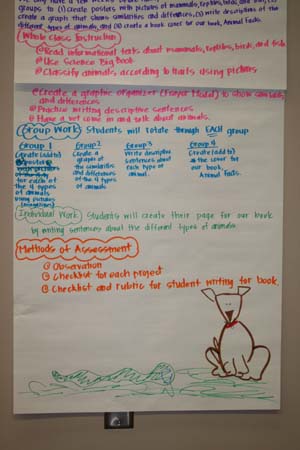 groups to (1) create posters with pictures of mammals, reptiles, birds, and fish, (2)
create a graph that shows similarities and differences, (3) write descriptions of the
different types of animals, and (4) create a book cover for our book, Animal Facts.
Whole Class Instruction
Read informational texts about mammals, reptiles, birds, and fish
Use Science Big book
Classify animals, according to traits using pictures
Create a graphic organizer (Frayer Model) to show similarities
and differences
Practice writing descriptive sentences
Have a vet come in and talk about animals.
Group Work Students will rotate through EACH group
Group 1 Group 2 Group 3 Group 4
Create (add to) Create a Write descriptive Create (add to)
a poster graph of sentences about the cover for
the similarities each type of our book,
for each of and differences animal. Animal Facts.
the 4 types of the 4 types
of animals of animals.
using pictures
(magazines)
Individual Work Students will create their page for our book
by writing sentences about the different types of animals.
Methods of Assessment
Observation
Checklist for each project
Checklist and rubric for student writing for book.